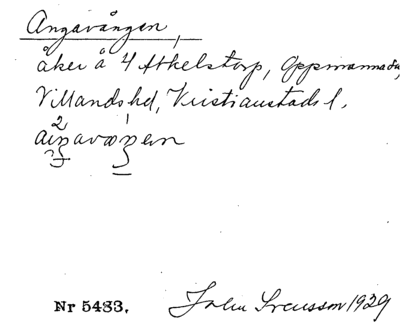 Angavången,
åker å 4 Attkelstorp, Oppmanna sn,
Villands hd, Kristianstads l.
Nr 5483. John Svensson 1929